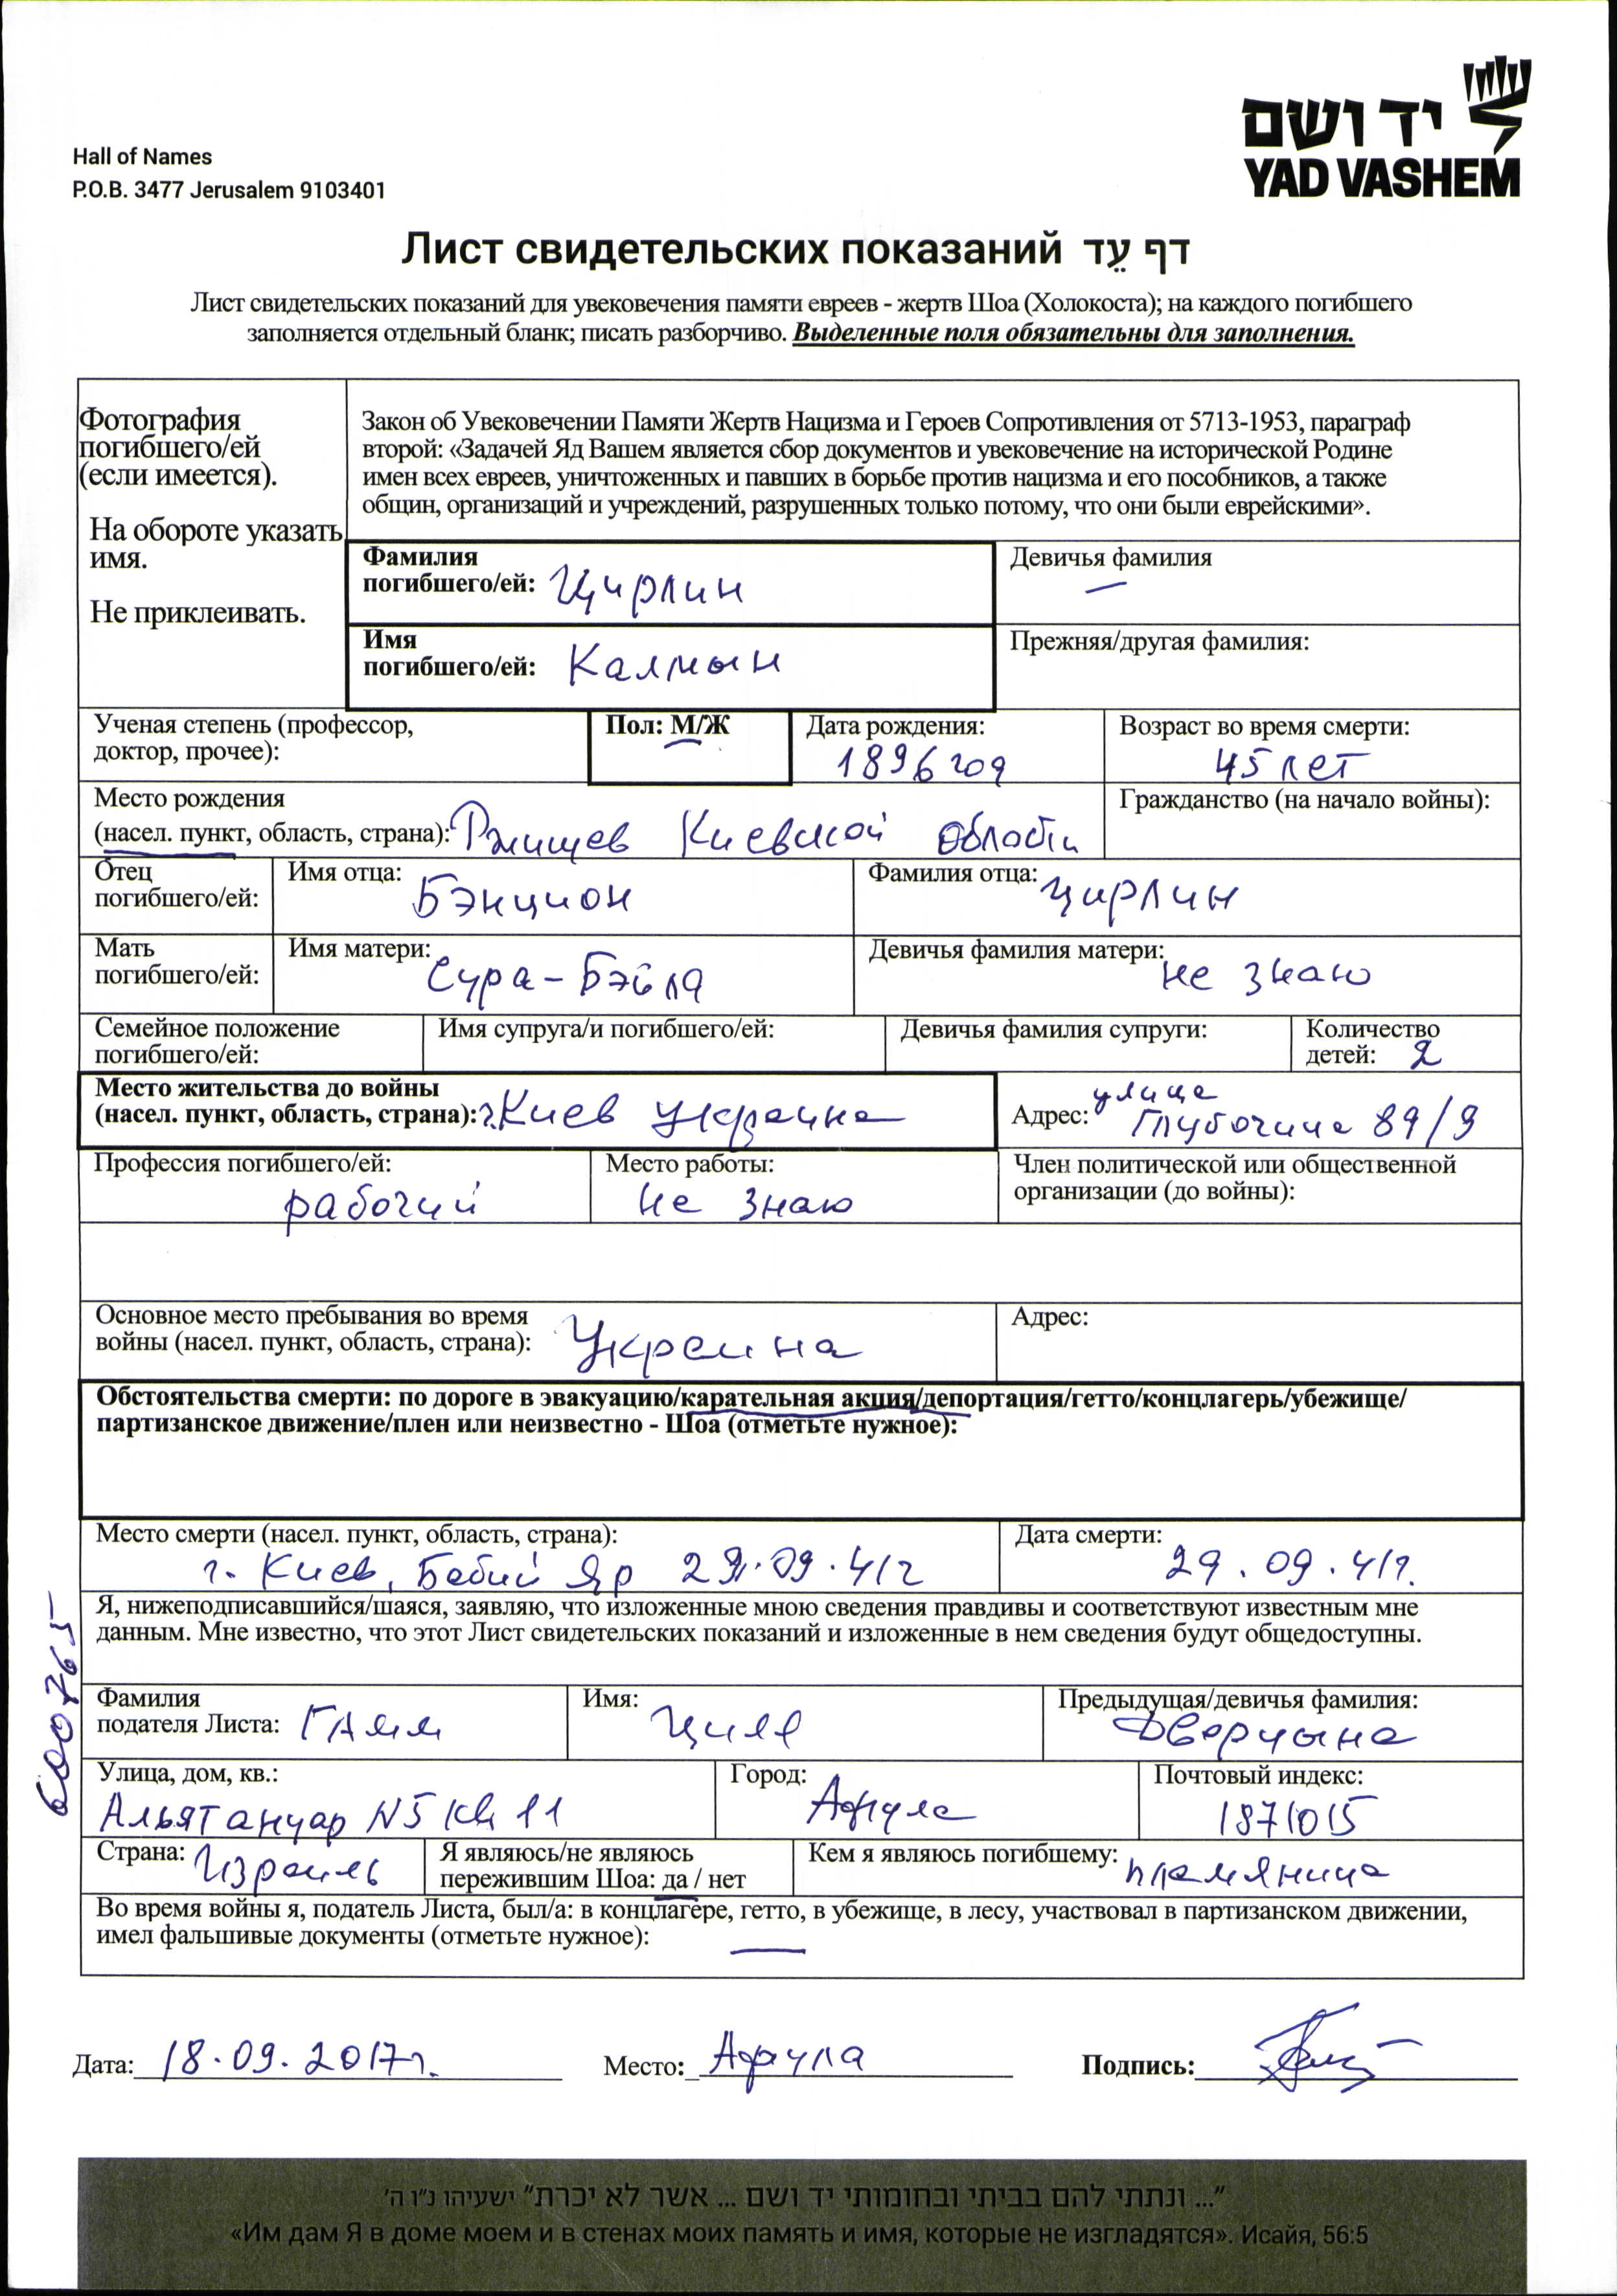 יד ושם
YAD VASHEM
Hall of Names
P.O.B. 3477 Jerusalem 9103401
Лист свидетельских показаний דף עֵד
Лист свидетельских показаний для увековечения памяти евреев - жертв Шоа (Холокоста); на каждого погибшего
заполняется отдельный бланк; писать разборчиво. Выделенные поля обязательны для заполнения.
Фотография
погибшего/ей
(если имеется).
На обороте указать
имя.
Не приклеивать.
Закон об Увековечении Памяти Жертв Нацизма и Героев Сопротивления от 5713-1953, параграф
второй: «Задачей Яд Вашем является сбор документов и увековечение на исторической Родине
имен всех евреев, уничтоженных и павших в борьбе против нацизма и его пособников, а также
общин, организаций и учреждений, разрушенных только потому, что они были еврейскими».
Фамилия
погибшего/ей: Цирлин
Девичья фамилия
—
Имя
погибшего/ей: Калмын
Прежняя/другая фамилия:
Ученая степень (профессор,
доктор, прочее):
Пол: М/Ж
Дата рождения:
1896 год
Возраст во время смерти:
45 лет
Место рождения
(насел. пункт, область, страна): Ржищев Киевской области
Гражданство (на начало войны):
Отец
погибшего/ей:
Имя отца:
Бэнцион
Фамилия отца:
Цирлин
Мать
погибшего/ей:
Имя матери:
Сура-Бэйла
Девичья фамилия матери:
не знаю
Семейное положение
погибшего/ей:
Имя супруга/и погибшего/ей:
Девичья фамилия супруги:
Количество
детей: 2
Место жительства до войны
(насел. пункт, область, страна): г. Киев Украина
улица
Адрес: Глубочица 89/9
Профессия погибшего/ей:
рабочий
Место работы:
не знаю
Член политической или общественной
организации (до войны):
Основное место пребывания во время
войны (насел. пункт, область, страна): Украина
Адрес:
Обстоятельства смерти: по дороге в эвакуацию/карательная акция/депортация/гетто/концлагерь/убежище/
партизанское движение/плен или неизвестно - Шоа (отметьте нужное):
Место смерти (насел. пункт, область, страна):
г. Киев, Бабий Яр 29.09.41г
Дата смерти:
29.09.41г.
Я, нижеподписавшийся/шаяся, заявляю, что изложенные мною сведения правдивы и соответствуют известным мне
данным. Мне известно, что этот Лист свидетельских показаний и изложенные в нем сведения будут общедоступны.
600765
Фамилия
подателя Листа: Гамм
Имя:
Циля
Предыдущая/девичья фамилия:
Дверцына
Улица, дом, кв.:
Альятануар N5 кв 11
Город:
Афула
Почтовый индекс:
1871015
Страна: Израиль
Я являюсь/не являюсь
пережившим Шоа: да / нет
Кем я являюсь погибшему: племяница
Во время войны я, податель Листа, был/а: в концлагере, гетто, в убежище, в лесу, участвовал в партизанском движении,
имел фальшивые документы (отметьте нужное): —
Дата: 18.09.2017г.
Место: Афула
Подпись:
"... ונתתי להם בביתי ובחומותי יד ושם ... אשר לא יכרת" ישעיהו נ"ו ה'
«Им дам Я в доме моем и в стенах моих память и имя, которые не изгладятся». Исайя, 56:5